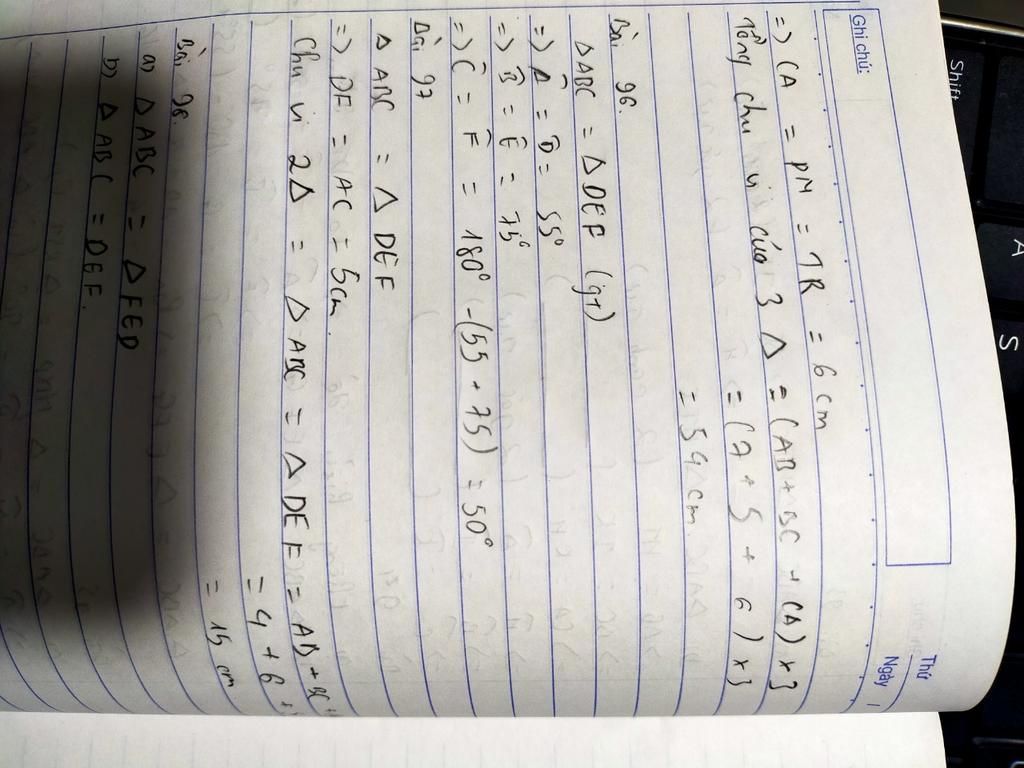 Ghi chú:
Thứ
Ngày
=) CA = PM = IR = 6 cm
Tổng chu vi của 3 Δ = (AB + BC + CA) x 3
= (7 + 5 + 6) x 3
= 54 cm
Bài 96.
Δ ABC = Δ DEF (gt)
=) Â = D̂ = 55°
=) B̂ = Ê = 75°
=) Ĉ = F̂ = 180° - (55 + 75) = 50°
Bài 97
Δ ABC = Δ DEF
=) DF = AC = 5cm.
Chu vi 2Δ = Δ ABC = Δ DEF = AB + BC +
= 4 + 6 +
= 15 cm
Bài 98.
a) Δ ABC = Δ FED
b) Δ ABC = DEF.
Shift
A
S